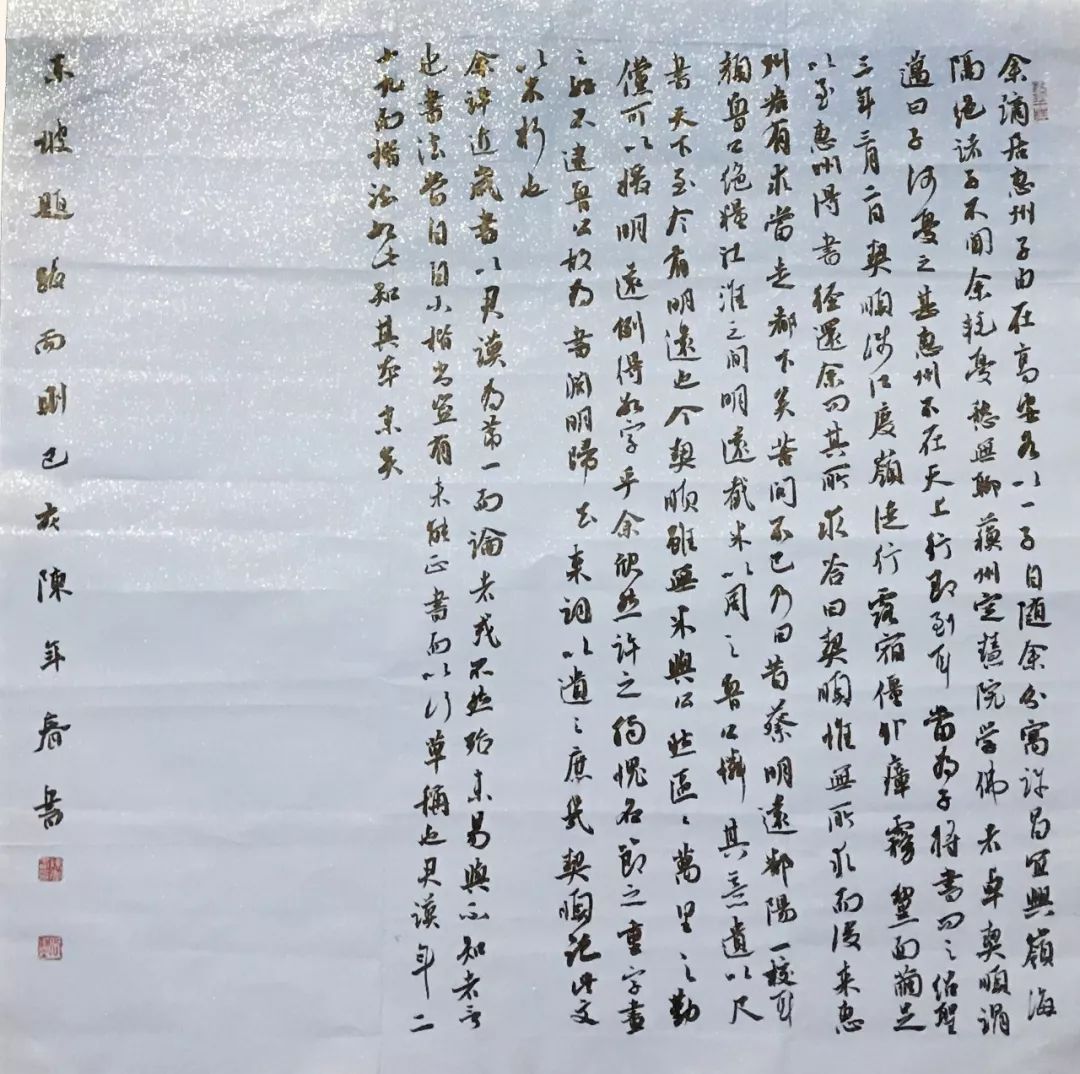 余謫居惠州子由在高安各以一子自随余分寓許昌宜興嶺海
隔絕諸子不聞余耗憂愁無聊蘇州定慧院学佛者卓契順謂
邁曰子何憂之甚惠州不在天上行即到耳當為子將書問之紹聖
三年三月二日契順涉江度嶺徒行露宿僵仆瘴霧黧面繭足
以至惠州得書徑還余問其所求答曰契順惟無所求而後来惠
州若有求當走都下矣苦問不已乃曰昔蔡明遠鄱陽一校耳
顏魯公絕糧江淮之間明遠載米以周之魯公憐其意遺以尺
書天下至今有明遠也今契順雖無米與公然區〻萬里之勤
儻可以援明遠例得數字乎余欣然許之獨愧名節之重字畫
之好不逮魯公故為書淵明歸去来詞以遺之庶幾契順託此文
以不朽也
余評近歲書以君謨為第一而論者或不然殆未易與不知者言
也書法當自小楷出豈有未能正書而以行草稱也君謨年二
十九而楷法如此知其本末矣
東坡題跋兩則己亥陳年春書